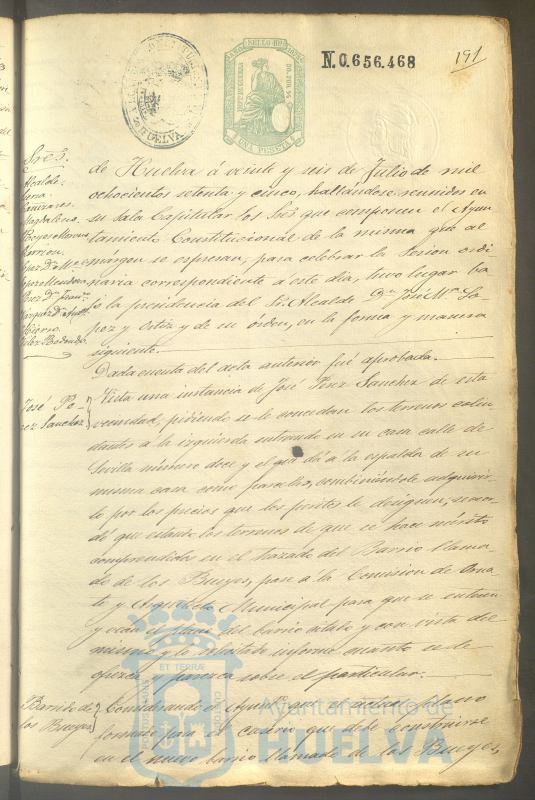 N.0.656.468
191
SELLO 11º
UNA PESETA
HUELVA
Sres.
Alcalde
de Huelva á veinte y seis de Julio de mil
ochocientos setenta y cinco, hallándose reunidos en
su Sala Capitular los Sres. que componen el Ayun
tamiento Constitucional de la misma que al
margen se espresan, para celebrar la Sesion ordi
naria correspondiente á este dia, tuvo lugar ba
jo la presidencia del Sr. Alcalde Dn. José Mª Lo
pez y Ortiz y de su órden, en la forma y manera
siguiente.
Dada cuenta del acta anterior fué aprobada.
José Pe-
rez Sanchez
Vista una instancia de José Perez Sanchez de esta
vecindad, pidiendo se le concedan los terrenos colin
dantes á la izquierda entrando en su casa calle de
Sevilla número doce y el que dá á la espalda de su
misma casa como paralela, combiniéndole adquirir
lo por los precios que los peritos le designen, se acor
dó que estando los terrenos de que se hace mérito
comprendidos en el trazado del Barrio llama
do de los Bueyes, pase á la Comision de Orna
to y Arquitecto Municipal para que se enteren
y vean el plano del barrio citado y con vista del
mismo y lo solicitado informe cuanto se le
ofrezca y parezca sobre el particular.
Barrio de
los Bueyes
Considerando el Ayuntº que el actual plano
formado para el caserío que debe construirse
en el nuevo barrio llamado de los Bueyes,
ET TERRÆ
PORTUS MARIS
CUSTODIA
Ayuntamiento de
HUELVA